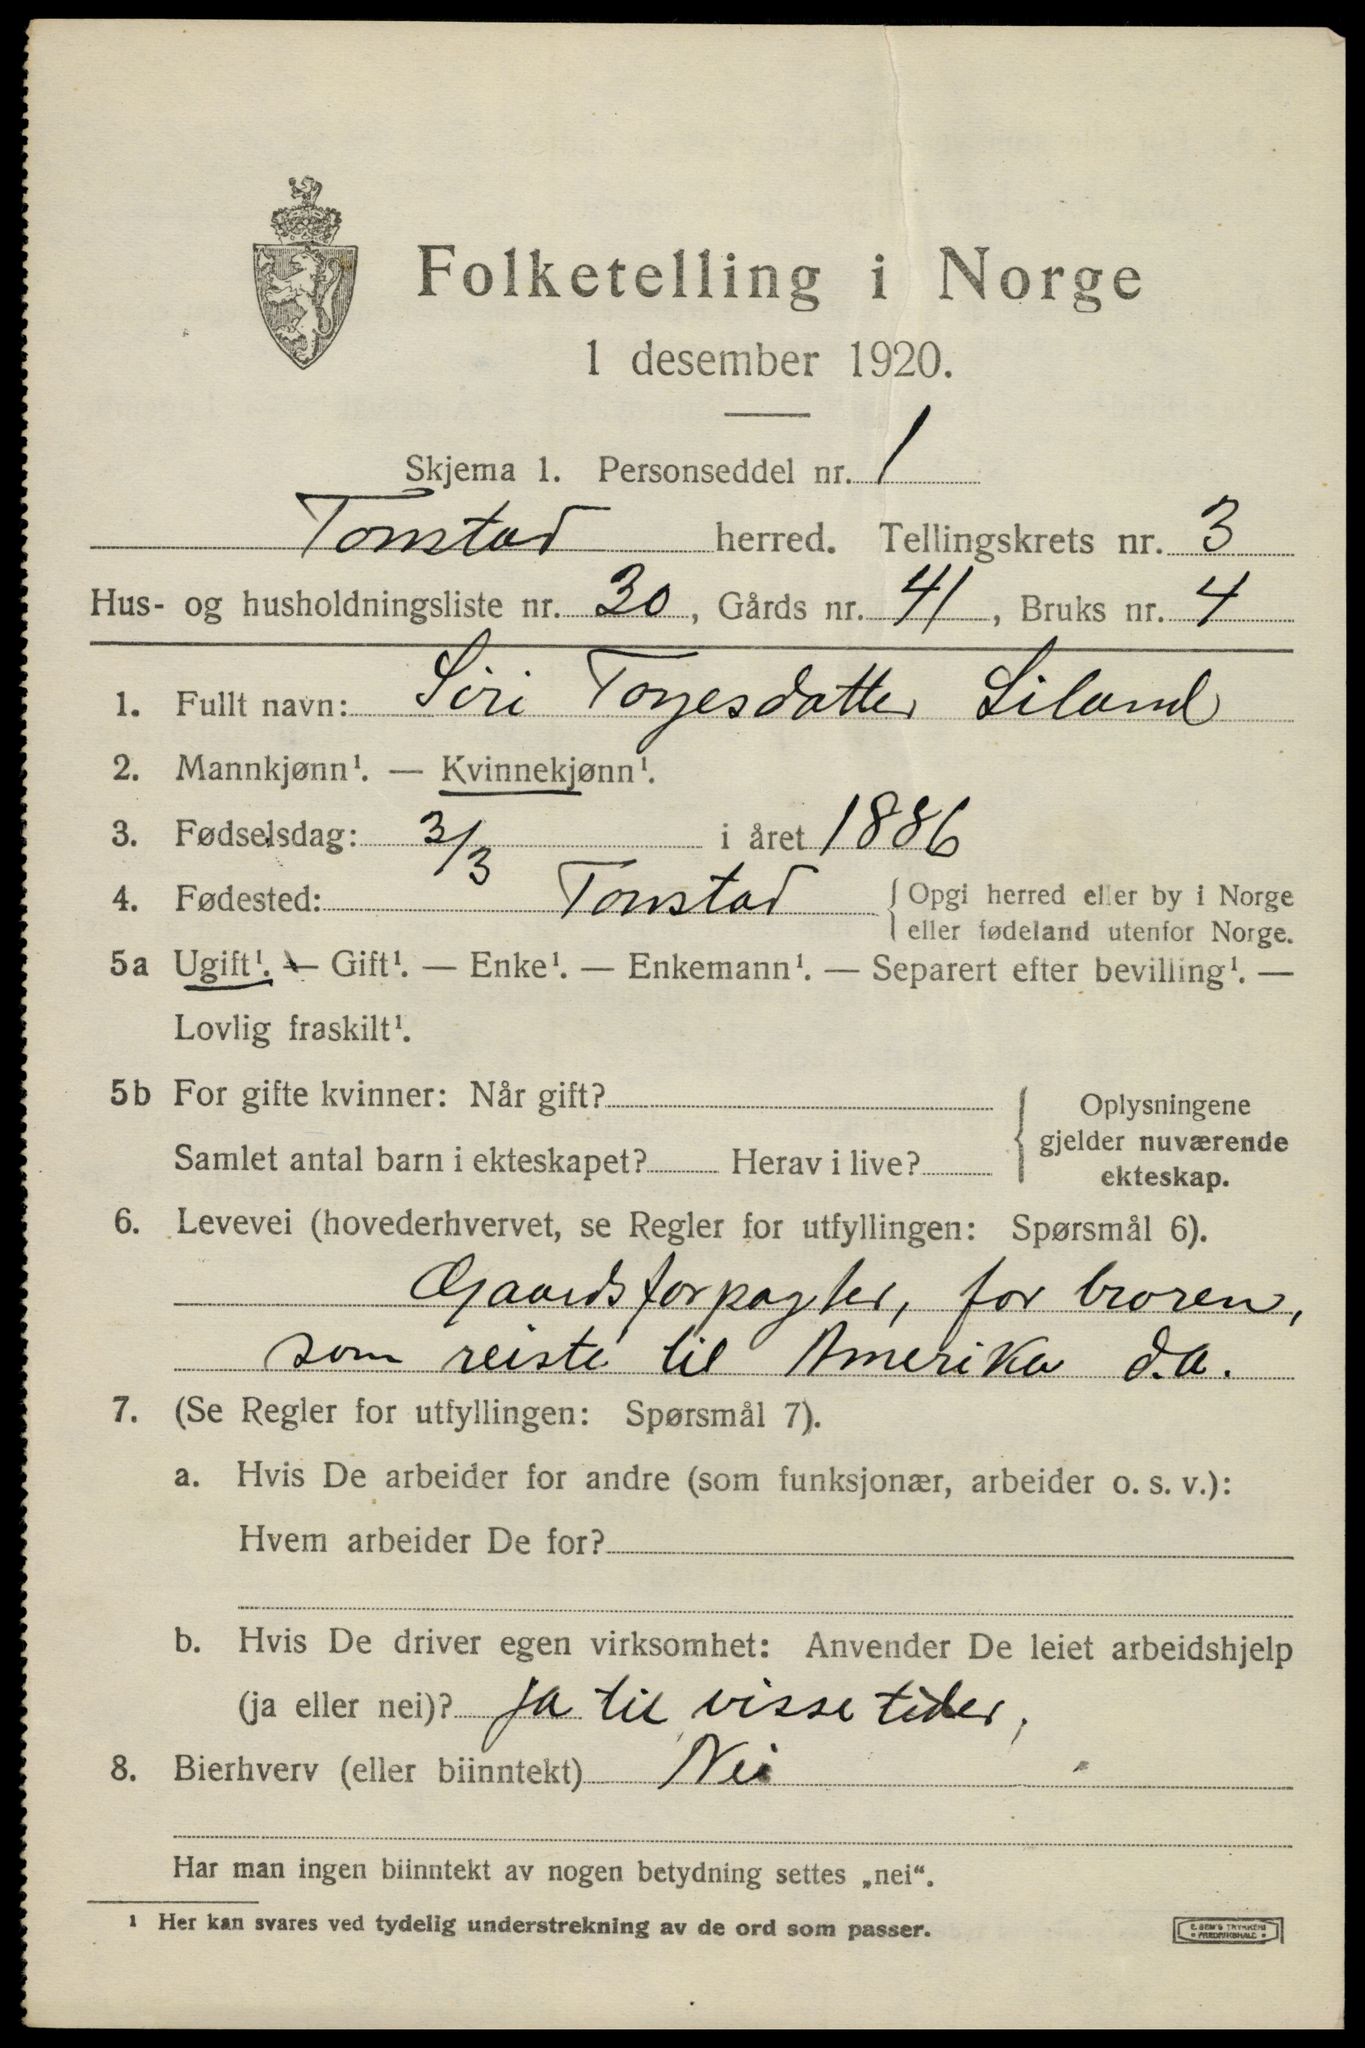 Folketelling i Norge
1 desember 1920.
Skjema 1. Personseddel nr. 1
Tonstad herred. Tellingskrets nr. 3
Hus- og husholdningsliste nr. 30, Gårds nr. 41, Bruks nr. 4
1. Fullt navn: Siri Torjesdatter Liland
2. Mannkjønn¹. — Kvinnekjønn¹.
3. Fødselsdag: 3/3 i året 1886
4. Fødested: Tonstad { Opgi herred eller by i Norge
eller fødeland utenfor Norge.
5a Ugift¹. — Gift¹. — Enke¹. — Enkemann¹. — Separert efter bevilling¹. —
Lovlig fraskilt¹.
5b For gifte kvinner: Når gift?
Samlet antal barn i ekteskapet? Herav i live?
Oplysningene
gjelder nuværende
ekteskap.
6. Levevei (hovederhvervet, se Regler for utfyllingen: Spørsmål 6).
Gaardsforpagter, for broren,
som reiste til Amerika d.a.
7. (Se Regler for utfyllingen: Spørsmål 7).
a. Hvis De arbeider for andre (som funksjonær, arbeider o. s. v.):
Hvem arbeider De for?
b. Hvis De driver egen virksomhet: Anvender De leiet arbeidshjelp
(ja eller nei)? ja til visse tider,
8. Bierhverv (eller biinntekt) Nei
Har man ingen biinntekt av nogen betydning settes „nei“.
¹ Her kan svares ved tydelig understrekning av de ord som passer.
E. SEM'S TRYKKERI
FREDRIKSHALD